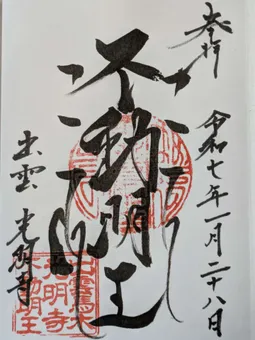 奉拝
令和七年一月二十八日
不動明王
出雲 光明寺
出雲
光明寺
不動明王